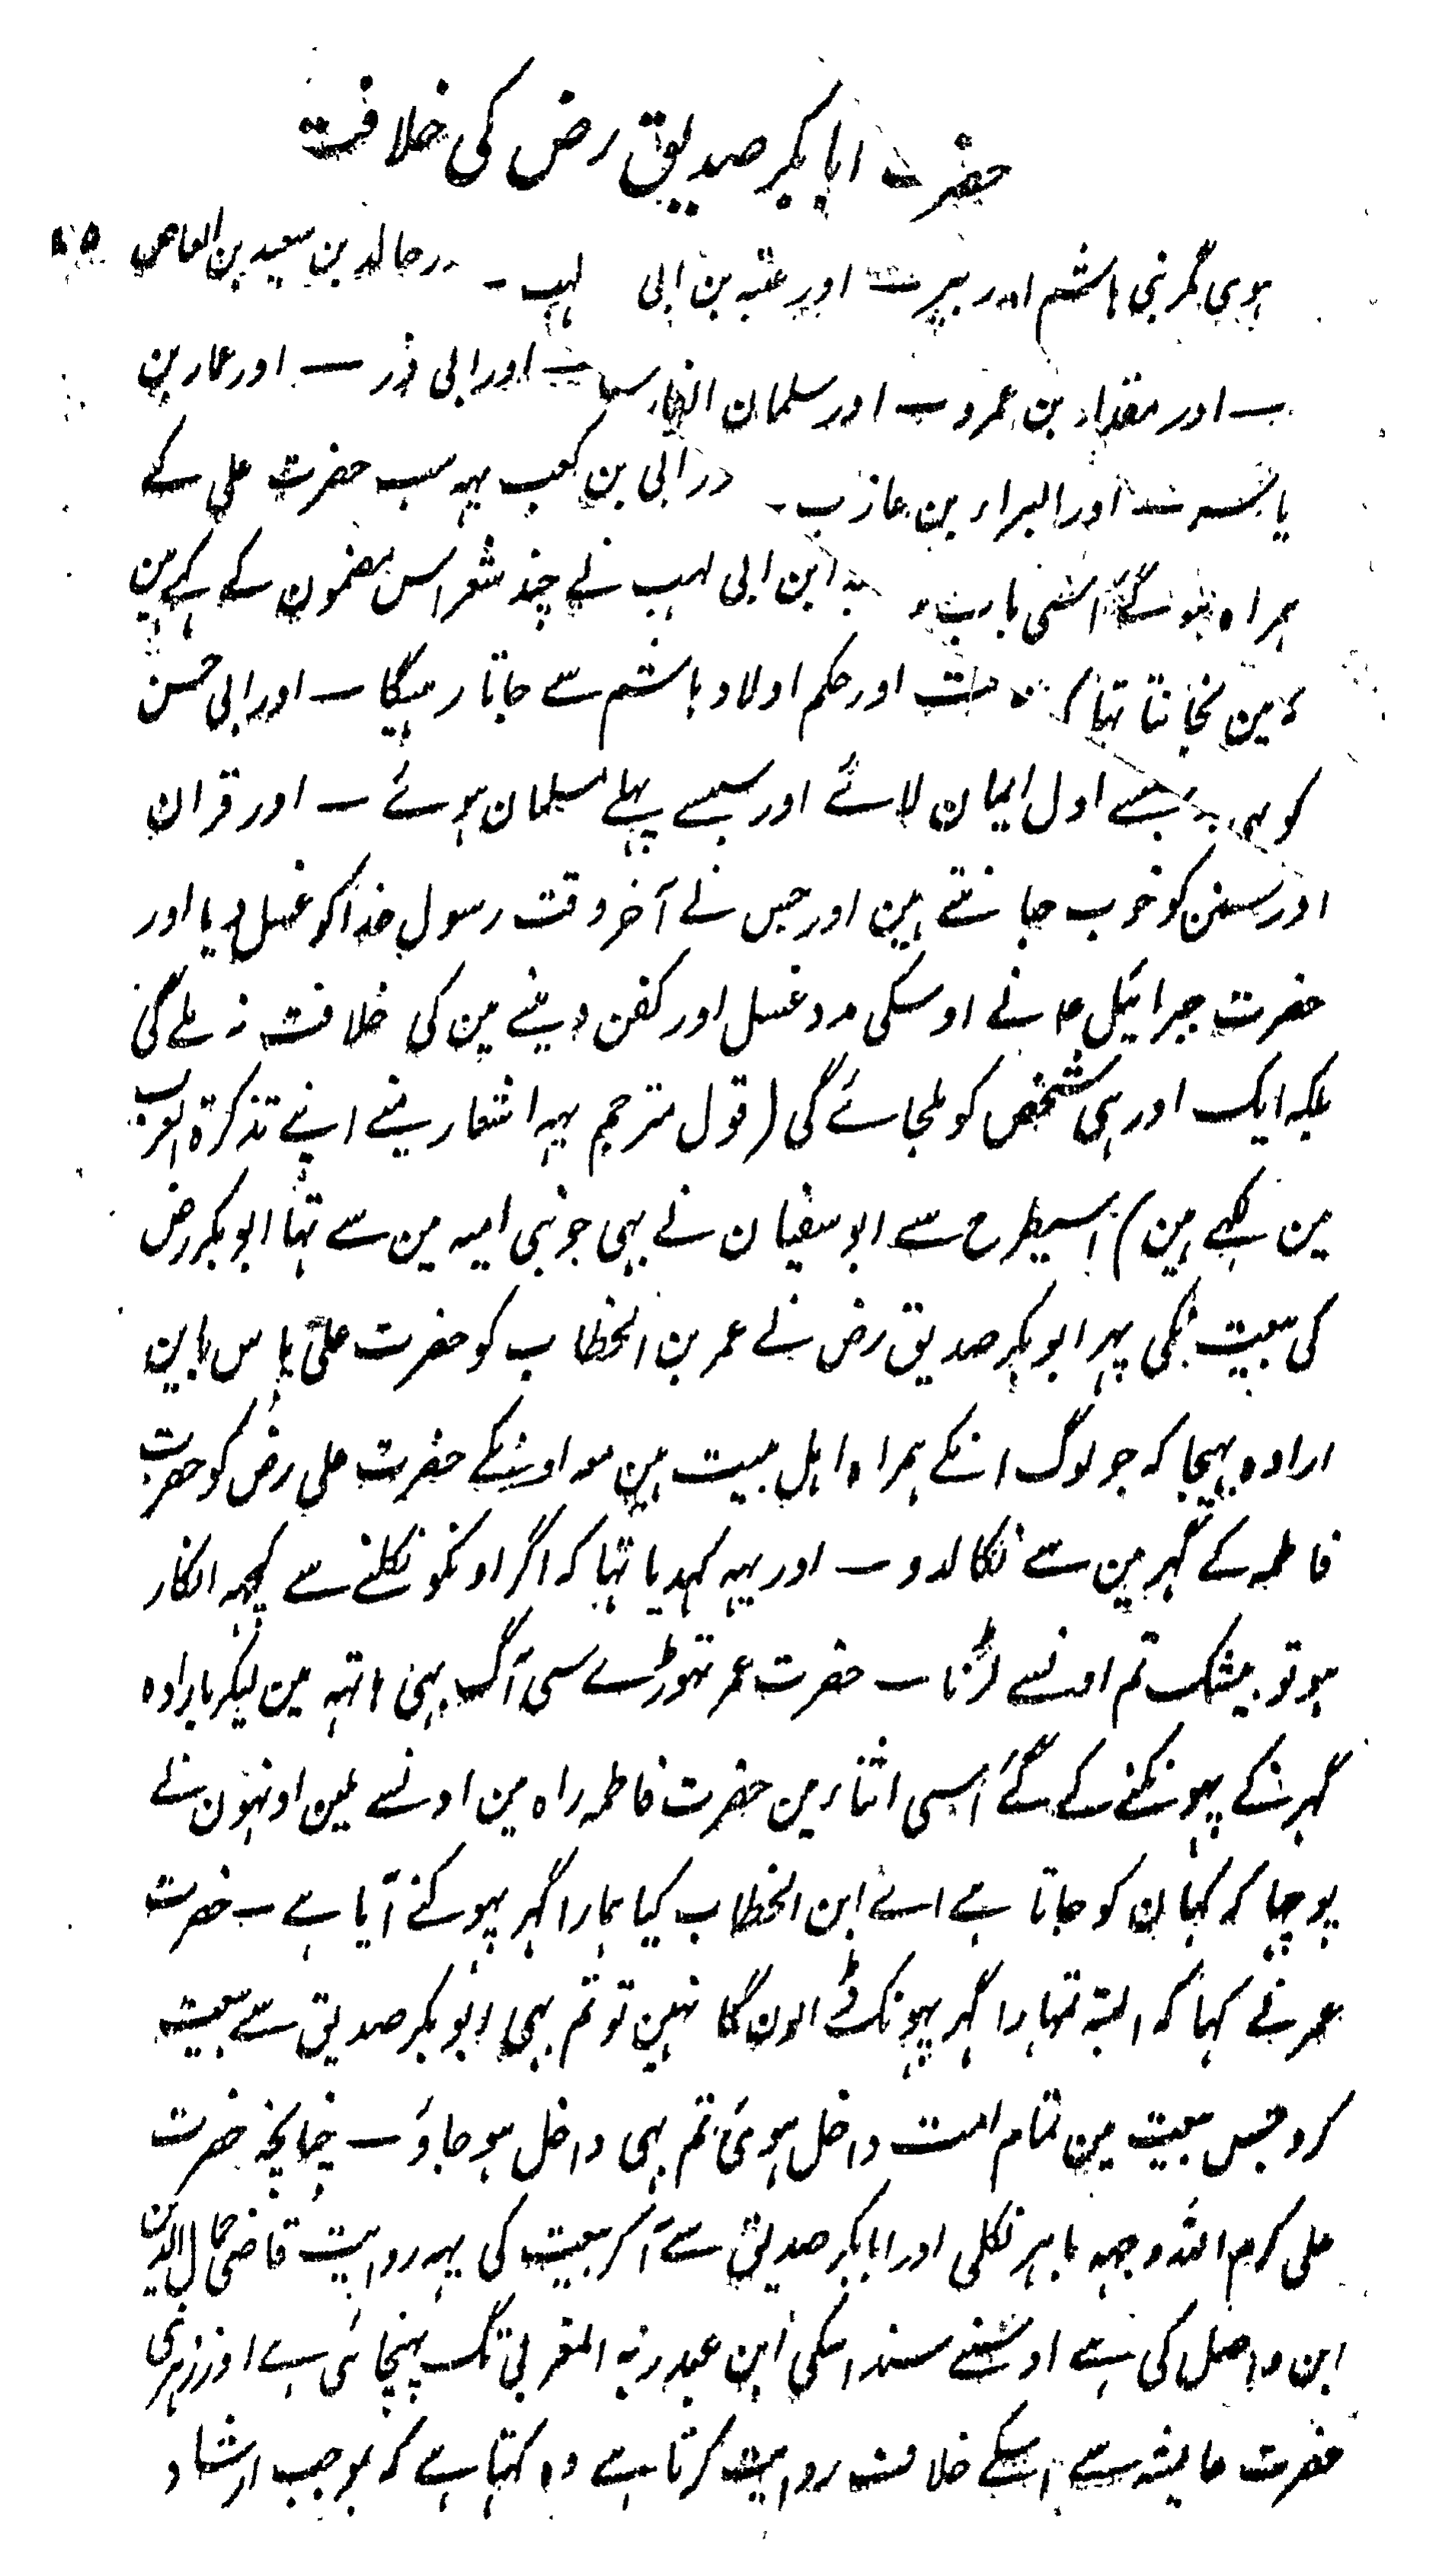 حضرت ابابکر صدیق رض کی خلافت
ہوی مگر بنی ہاشم اور عتبہ بن ابی لہب ۔ خالد بن سعید بن العاص
۔ اور مقداد بن عمرو ۔ اور سلمان ۔ اور ابی ذر ۔ اور عمار بن
یاسر ۔ اور البراء بن عازب ۔ ابی بن کعب یہہ سب حضرت علی کے
ہمراہ ہو گئے اسی ابن ابی لہب نے چند شعر اس مضمون کے کہے ہین
کہ مین نجانتا تہا کہ اور حکم اولاد ہاشم سے جاتا رہیگا ۔ اور ابی حسن
کو اول ایمان لائے اور سبسے پہلے مسلمان ہوئے ۔ اور قران
اور سنن کو خوب جانتے ہین اور جس نے آخر وقت رسول خدا کو غسل دیا اور
حضرت جبرائیل ع نے اوسکی مدد غسل اور کفن دینے مین کی خلافت نہ ملے گی
بلکہ ایک اور ہی شخص کو ملجائے گی (قول مترجم یہہ اشعار مینے اپنے تذکرۃ العرب
مین لکہے ہین) اسیطرح سے ابو سفیان نے بہی جو بنی امیہ مین سے تہا ابوبکر رض
کی بیعت نکی پہر ابو بکر صدیق رض نے عمر بن الخطاب کو حضرت علی پاس باین
ارادہ بہیجا کہ جو لوگ انکے ہمراہ اہل بیت ہین معہ اونکے حضرت علی رض کو حضرت
فاطمہ کے گہر مین سے نکالدو ۔ اور یہہ کہدیا تہا کہ اگر اونکو نکلنے سے کچہہ انکار
ہو تو بیشک تم اونسے لڑنا ۔ حضرت عمر تہوڑے سی آگ بہی ہاتہہ مین لیکر بارادہ
گہر نکے پہونکنے کے گئے اسی اثناء مین حضرت فاطمہ راہ مین اونسے ملین اونہون نے
پوچہا کہ کہان کو جاتا ہے اے ابن الخطاب کیا ہمارا گہر پہونکنے آیا ہے ۔ حضرت
عمر نے کہا کہ البتہ تمہارا گہر پہونک ڈالون گا نہین تو تم بہی ابو بکر صدیق سے بیعت
کرو جس بیعت مین تمام امت داخل ہوئی تم بہی داخل ہو جاؤ ۔ چنانچہ حضرت
علی کرم اللہ وجہہ باہر نکلی اور ابابکر صدیق سے آکر بیعت کی یہہ روایت قاضی جمال الدین
ابن واصل کی ہے اوسنے سند اسکی ابن عبد ربہ المغربی تک پہنچائی ہے اور زہری
حضرت عایشہ سے اسکے خلاف روایت کرتا ہے وہ کہتا ہے کہ بموجب ارشاد